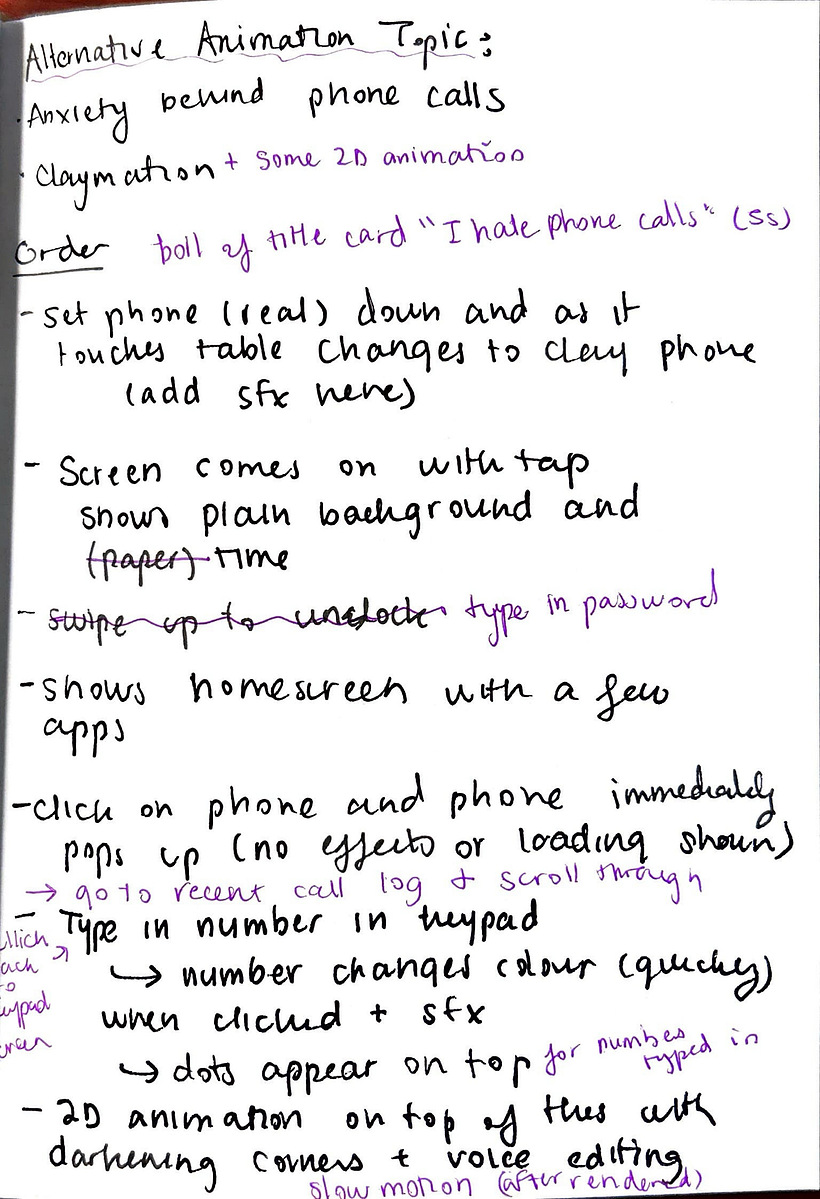 Alternative Animation Topic:
· Anxiety behind phone calls
· Claymation + some 2D animation
Order boll of title card "I hate phone calls" (5s)
- set phone (real) down and as it
touches table changes to clay phone
(add sfx here)
- Screen comes on with tap
shows plain background and
(paper) time
- swipe up to unclock type in password
- shows homescreen with a few
apps
- click on phone and phone immediately
pops up (no effects or loading shown)
→ go to recent call log + scroll through
- Type in number in keypad
click
back
to
keypad
screen
↳ number changes colour (quickly)
when clicked + sfx
↳ dots appear on top for numbers
typed in
- 2D animation on top of this with
darkening corners + voice editing
slow motion (after rendered)